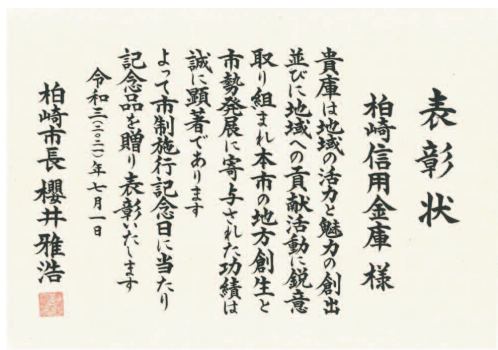 表彰状
柏崎信用金庫 様
貴庫は地域の活力と魅力の創出
並びに地域への貢献活動に鋭意
取り組まれ本市の地方創生と
市勢発展に寄与された功績は
誠に顕著であります
よって市制施行記念日に当たり
記念品を贈り表彰いたします
令和三(二〇二一)年七月一日
柏崎市長 櫻井雅浩